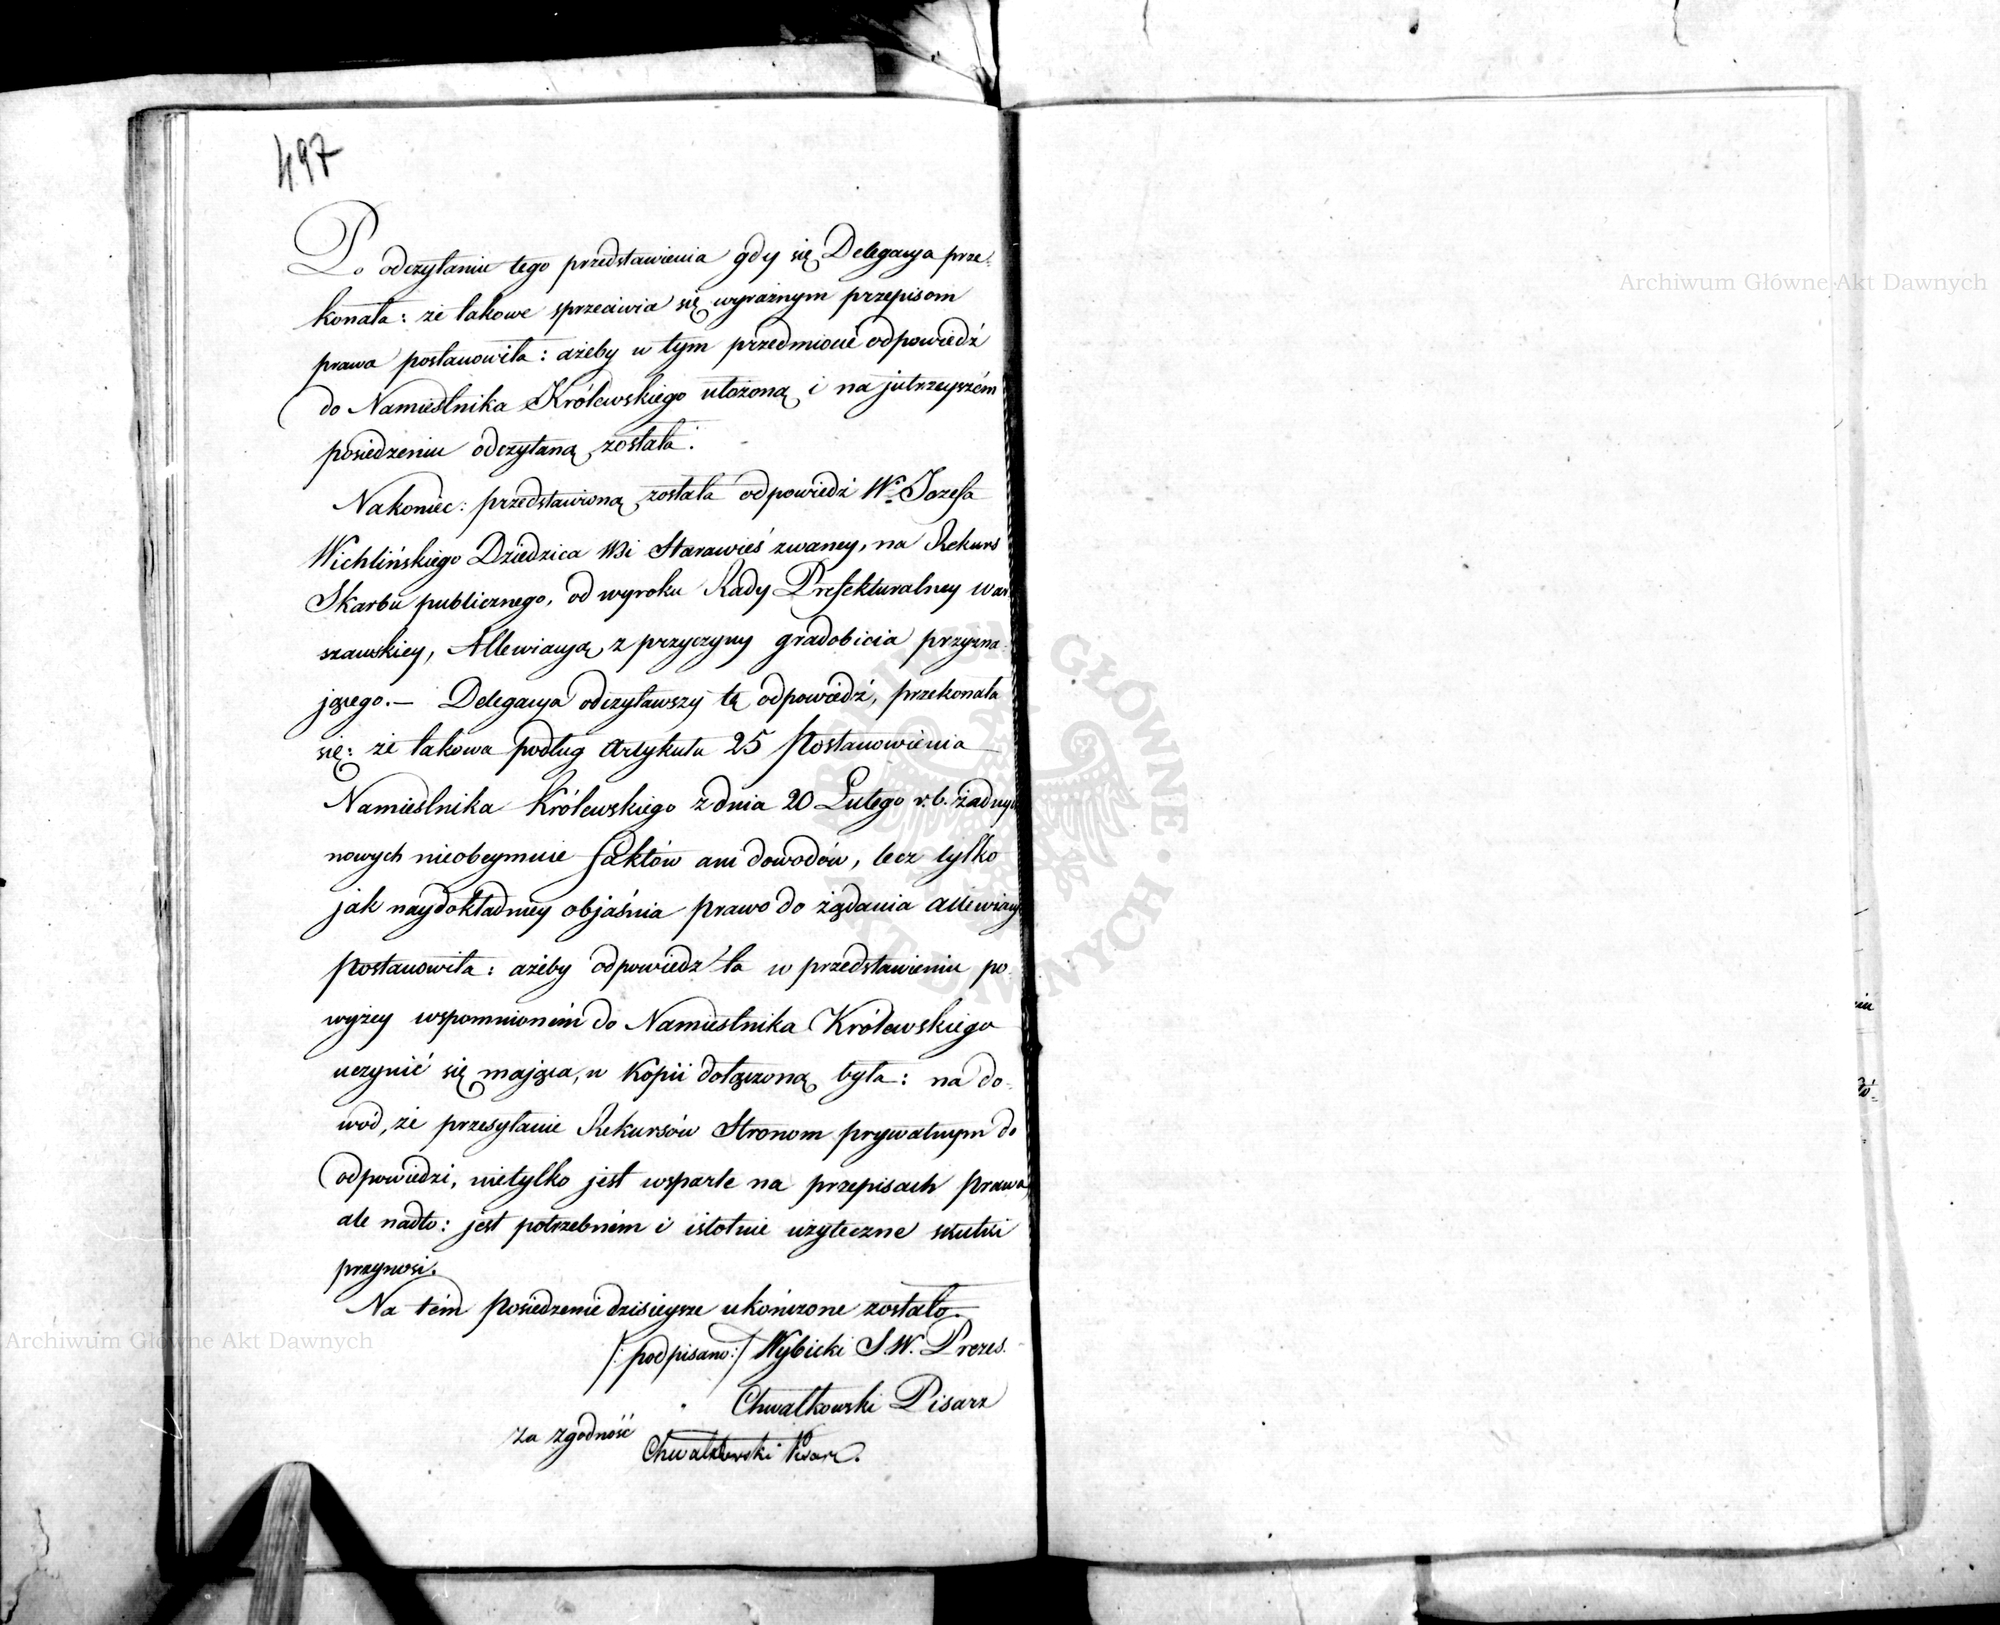 497
Po odczytaniu tego przedstawienia gdy się Delegacya prze-
konała: że takowe sprzeciwia się wyraźnym przepisom
prawa postanowiła: ażeby w tym przedmiocie odpowiedź
do Namiestnika Królewskiego ułożoną i na jutrzeyszém
posiedzeniu odczytaną została.
Nakoniec: przedstawioną została odpowiedź Wo. Jozefa
Wichlińskiego Dziedzica Wsi Starawieś zwaney, na Rekurs
Skarbu publicznego, od wyroku Rady Prefekturalney war
szawskiey, Allewiacyą z przyczyny gradobicia przyzna-
jącego.— Delegacya odczytawszy tę odpowiedź, przekonała
się: że takowa podług Artykułu 25 Postanowienia
Namiestnika Królewskiego z dnia 20 Lutego r. b. żadnych
nowych nieobeymuie faktów ani dowodów, lecz tylko
jak naydokładniey objaśnia prawo do żądania allewiacyi
Postanowiła: ażeby odpowiedz ta w przedstawieniu po-
wyżey wspomnioném do Namiestnika Królewskiego
uczynić się maiąca, w Kopii dołączoną była: na do-
wód, że przesyłanie Rekursów Stronom prywatnym do
odpowiedzi, nietylko jest wsparte na przepisach prawa,
ale nadto: jest potrzebném i istotnie użyteczne skutki
przynosi.
Na tém Posiedzenie dzisieysze ukończone zostało.
/:podpisano:/ Wybicki S.W. Prezes.
Chwałkowski Pisarz
za zgodność
Chwałkowski Pisarz.
Archiwum Główne Akt Dawnych
Archiwum Główne Akt Dawnych